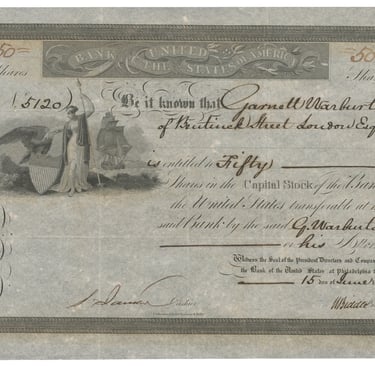 50
BANK OF THE UNITED STATES OF AMERICA
50
Shares
Sha
(5120)
Be it known that Garnett Warburt
of Bentinck Street London Esq
is entitled to Fifty
Shares in the Capital Stock of the Ban
the United States transferable at
said Bank by the said G. Warbur
or his
Witness the Seal of the President Directors and Compan
the Bank of the United States at Philadelphia
15 day of June
Cashier
N Biddle